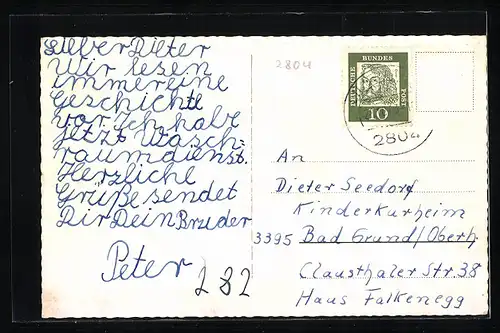 Lieber Dieter
Wir lesen
immer eine
Geschichte
vor. Ich habe
jetzt Wasch-
raumdienst.
Herzliche
Grüße sendet
Dir Dein Bruder
Peter
282
2804
DEUTSCHE BUNDES POST
10
2804
An
Dieter Seedorf
Kinderkurheim
3395 Bad Grund/Oberh.
Clausthaler Str. 38
Haus Falkenegg